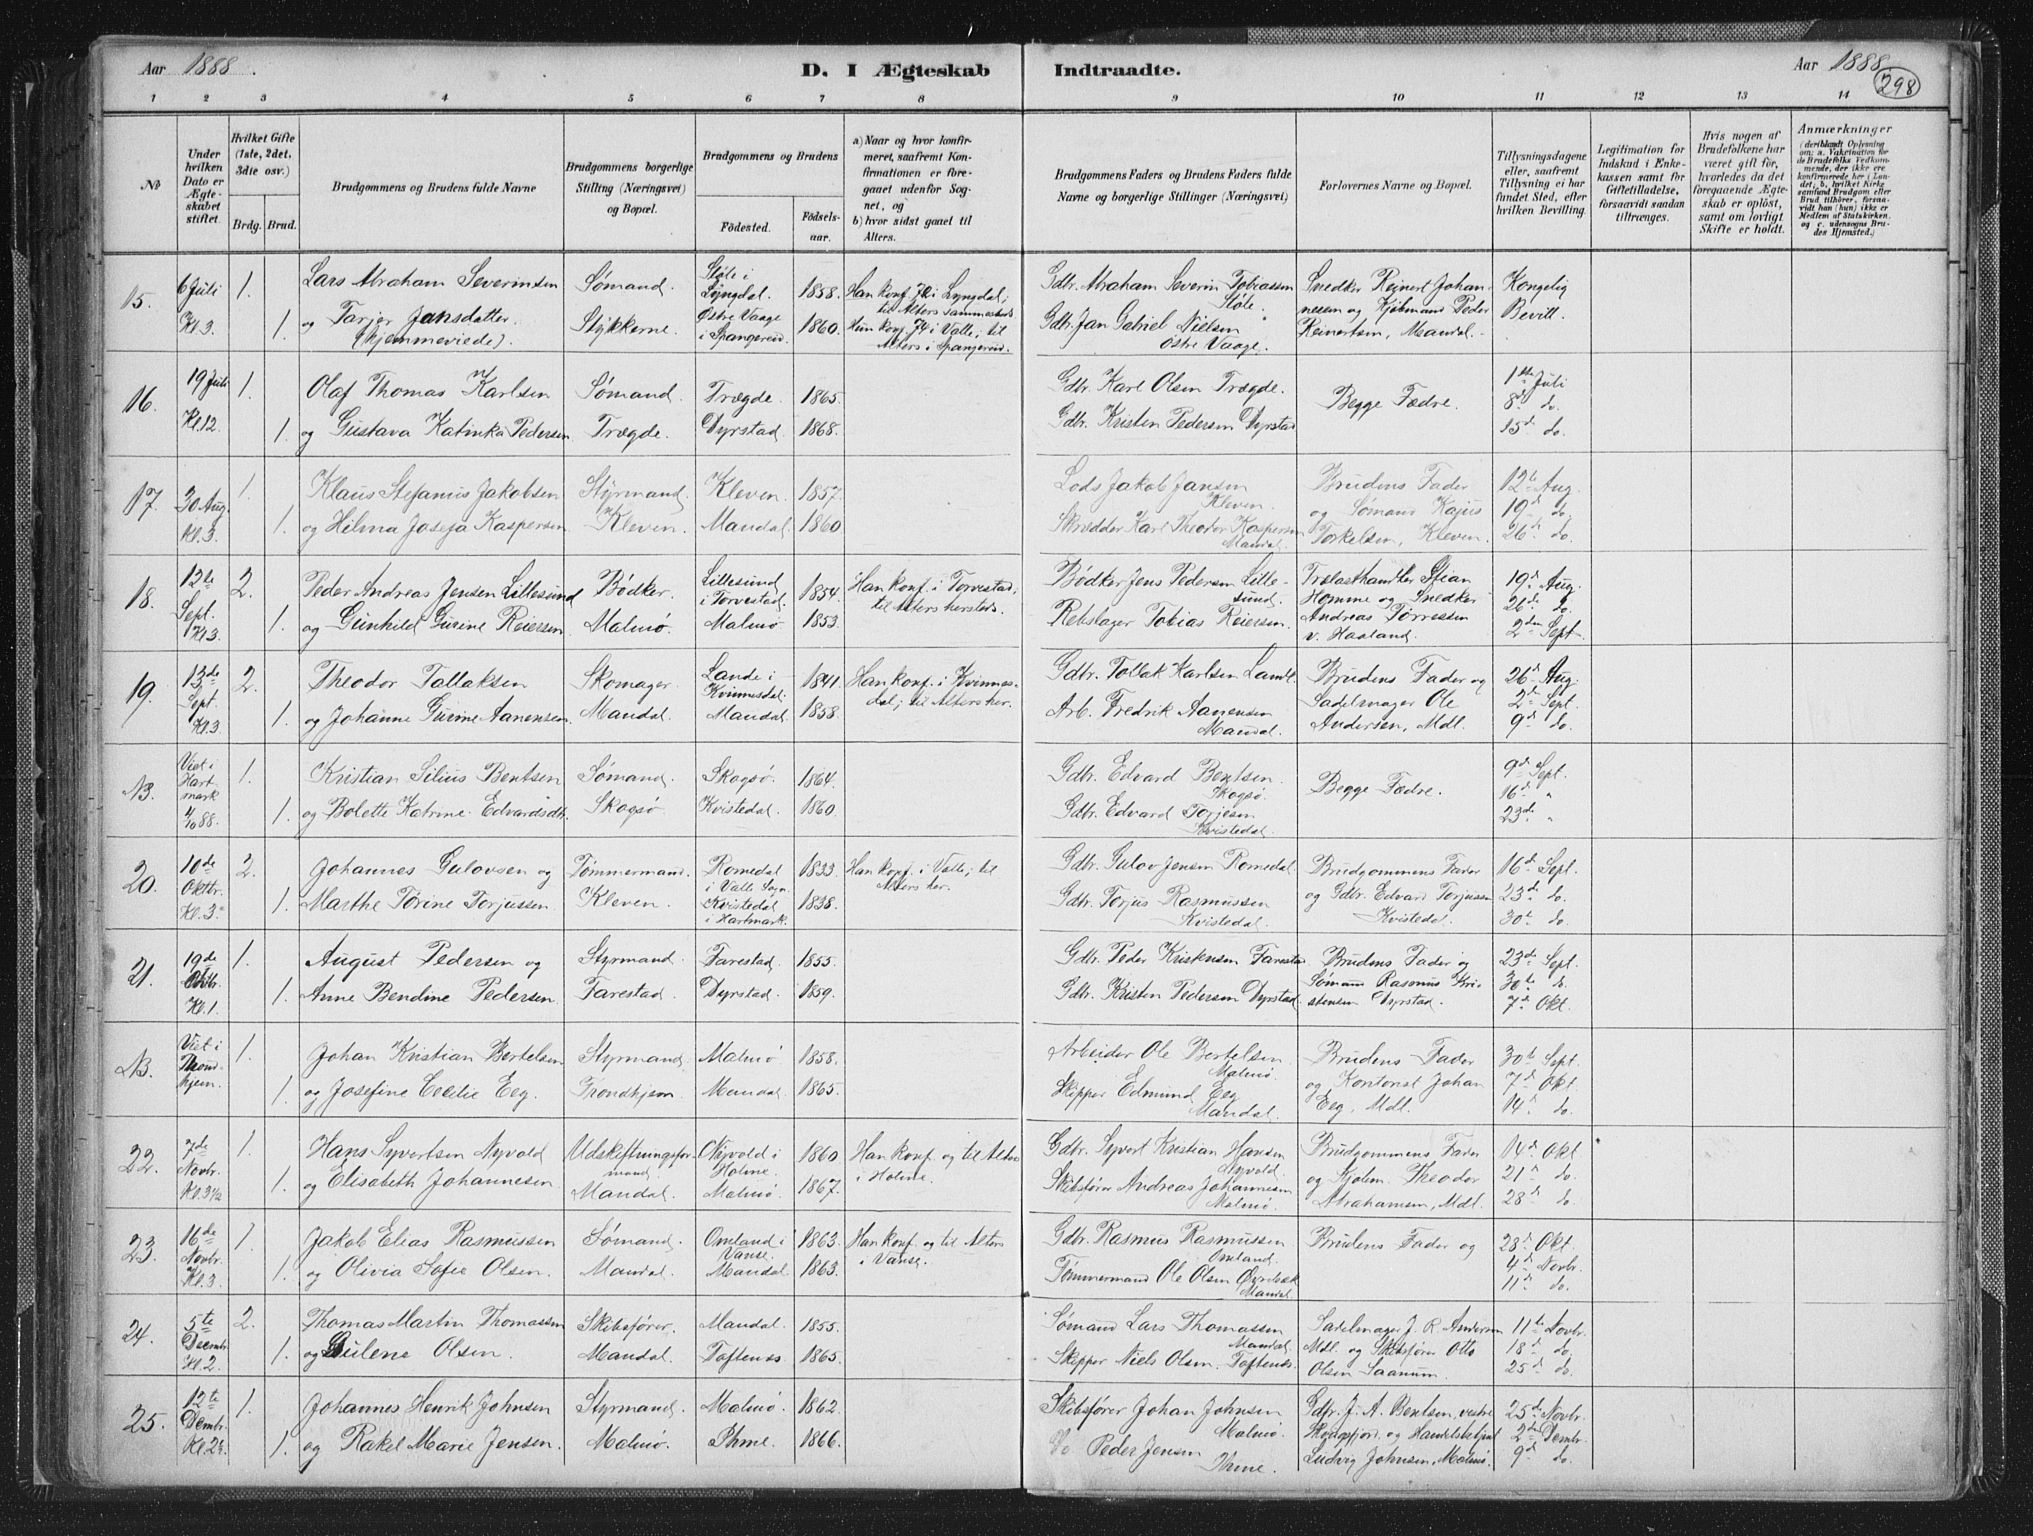 Aar 1888.
D. I Ægteskab Indtraadte.
Aar 1888
298
1 2 3 4 5 6 7 8 9 10 11 12 13 14
No
Under hvilken Dato er Ægteskabet stiftet.
Hvilket Gifte (1ste, 2det, 3die osv.)
Brdg. Brud.
Brudgommens og Brudens fulde Navne
Brudgommens borgerlige Stilling (Næringsvei) og Bopæl.
Brudgommens og Brudens
Födested.
Födsels-aar.
a) Naar og hvor konfirmeret, saafremt Konfirmationen er foregaaet udenfor Sognet, og
b) hvor sidst gaaet til Alters.
Brudgommens Faders og Brudens Faders fulde Navne og borgerlige Stillinger (Næringsvei)
Forlovernes Navne og Bopæl.
Tillysningsdagene eller, saafremt Tillysning ei har fundet Sted, efter hvilken Bevilling.
Legitimation for Indskud i Enkekassen samt for Giftetilladelse, forsaavidt saadan tiltrænges.
Hvis nogen af Brudefolkene har været gift för, hvorledes da det foregaaende Ægteskab er oplöst, samt om lovligt Skifte er holdt.
Anmærkninger
(deriblandt Oplysning om: a. Vakcination for de Brudefolks Vedkommende, der ikke ere konfirmerede her i Landet; b. hvilket Kirkesamfund Brudgom eller Brud tilhörer, forsaavidt han (hun) ikke er Medlem af Statskirken. og c. udensogns Brudes Hjemsted.)
15. 6 Juli Kl. 3. 1. Lars Abraham Severinsen Sømand. Støle i Lyngdal. 1858. Han konf. 72 i Lyngdal; til Alters sammesteds Gdbr. Abraham Severin Tobiassen Støle. Snedker Reinert Johannesen og Kjøbmand Peder Reinertsen, Mandal. Kongelig Bevill.
1. og Tarjer Jansdatter (hjemmeviede). Stykkerne. Østre Vaage i Spangereid. 1860. Hun konf. 74 i Valle; til Alters i Spangereid. Gdbr. Jan Gabriel Nielsen Østre Vaage.
16. 19 Juli Kl. 12. 1. Olaf Thomas Karlsen Sømand. Trægde. 1865. Gdbr. Karl Olsen Trægde. Begge Fædre. 1ste Juli 8d. do. 15d. do.
1. og Gustava Katinka Pedersen Trægde. Dyrstad. 1868. Gdbr. Kristen Pedersen Dyrstad
17. 30 Aug. Kl. 3. 1. Klaus Stefanus Jakobsen Styrmand. Kleven. 1857. Lods Jakob Jansen Kleven. Brudens Fader og Sømand Kajus Torkelsen, Kleven. 12te Aug. 19d. do. 26d. do.
1. og Hilma Josefa Kaspersen Kleven. Mandal. 1860 Skrædder Karl Theodor Kaspersen Mandal.
18. 12te Sept. Kl 3. 2. Peder Andreas Jensen Lillesund Bødker. Lillesund i Torvestad. 1854. Han konf. i Torvestad; til Alters hersteds. Bødker Jens Pedersen Lillesund. Trælasthandler Stian Homme og Snedker Andreas Tørressen v. Haaland. 19d. Aug. 26d. do. 2den Sept.
1. og Gunhild Gurine Reiersen Malmø. Malmø 1853. Rebslager Tobias Reiersen.
19. 13de Sept. Kl. 3. 2. Theodor Tallaksen Skomager. Lande i Kvinnesdal. 1841. Han konf. i Kvinnesdal; til Alters her. Gdbr. Tallak Karlsen Lande. Brudens Fader og Sadelmager Ole Andersen, Mdl. 26d. Aug. 2d. Sept. 9d. do.
1. og Johanne Gurine Aanensen. Mandal. Mandal. 1858. Arb. Fredrik Aanensen Mandal.
NB. Viet i Hartmark 4/10 88. 1. Kristian Silius Bentsen Sømand. Skogsø. 1864. Gdbr. Edvard Bentsen. Skogsø. Begge Fædre. 9d. Sept. 16d. " 23d. "
1. og Bolette Katrine Edvardsdtr. Skogsø. Kvistedal. 1860. Gdbr. Edvard Torjesen Kvistedal.
20. 10de Oktbr. Kl. 3. 2. Johannes Gulovsen og Tømmermand. Romedal i Valle Sogn. 1833. Han konf. i Valle; til Alters her. Gdbr. Gulov Jensen Romedal. Brudgommens Fader og Gdbr. Edvard Torjussen Kvistedal. 16d. Sept. 23de do. 30te do.
1. Marthe Torine Torjussen. Kleven. Kvistedal i Hartmark. 1838. Gdbr. Torjus Rasmussen Kvistedal.
21. 19de Oktbr. Kl. 1. 1. August Pedersen og Styrmand. Farestad. 1855. Gdbr. Peder Kristensen Farestad Brudens Fader og Sømand Rasmus Kristensen Dyrstad. 23de Sept. 30te do. 7d. Okt.
1. Anne Bendine Pedersen. Farestad. Dyrstad. 1859. Gdbr. Kristen Pedersen Dyrstad.
NB. Viet i Throndhjem. 1. Johan Kristian Bertelsen Styrmand. Malmø 1858. Arbeider Ole Bertelsen. Malmø. Brudens Fader og Kontorist Johan Eeg, Mdl. 30te Sept. 7d. Okt. 14d. do.
1. og Josefine Cecilie Eeg. Trondhjem. Mandal. 1865. Skipper Edmund Eeg Mandal.
22. 7de Novbr. Kl. 3½ 1. Hans Syvertsen Nyvold Udskiftningsformand. Nyvold i Holme. 1860 Han konf. og til Alters i Holme. Gdbr. Syvert Kristian Hansen Nyvold. Brudgommens Fader og Kjøbm. Theodor Abrahamsen, Mdl. 14d. Okt 21d. do. 28d. do.
1. og Elisabeth Johannesen. Mandal. Malmø. 1867. Skibsfører Andreas Johannesen Malmø.
23. 16de Novbr. Kl. 3. 1. Jakob Elias Rasmussen Sømand. Omland i Vanse. 1863. Han konf. og til Alters i Vanse. Gdbr. Rasmus Rasmussen Omland. Brudens Fader og 28d. Okt. 4d. Novbr. 11d. do.
1. og Olivia Sofie Olsen. Mandal. Mandal. 1863. Tømmermand Ole Olsen Mandal.
24. 5te Decmbr. Kl. 2. 2. Thomas Martin Thomassen Skibsfører. Mandal. 1855. Sømand Lars Thomassen Mandal. Sadelmager J. R. Andersen Mdl. og Skibsfører Otto Olsen Saanum. 11te Novbr. 18d. do. 25d. do.
1. og Gulene Olsen. Mandal. Toftenes 1865. Skipper Niels Olsen. Toftenes.
25. 12te Dcmbr. Kl. 2½. 1. Johannes Henrik Johnsen Styrmand. Malmø. 1862. Skibsfører Johan Johnsen Malmø. Gdbr. J. A. Bentsen, vestre Skogsfjord, og Handelsbetjent Ludvig Johnsen, Malmø. 25d. Novbr. 2den Dcmbr. 9d. do.
1. og Rakel Marie Jensen. Malmø. Ihme. 1866. Peder Jensen Ihme.